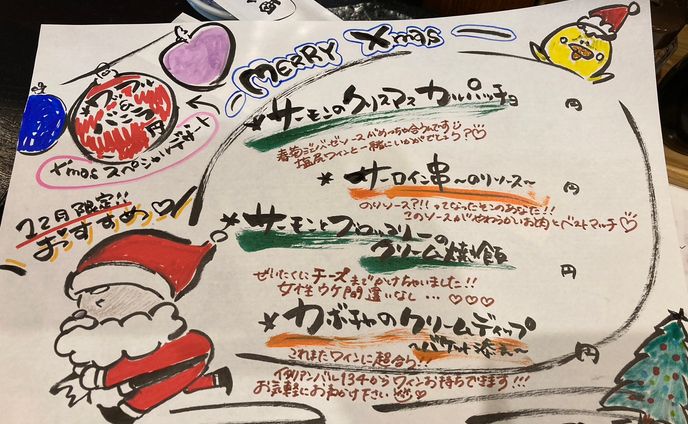 MERRY Xmas
Xmasスペシャルデザート
12月限定!!
おすすめ
サーモンのクリスマスカルパッチョ
円
春菊ジェノベーゼソースがめっちゃ合うんです
塩尻ワインと一緒にいかがでしょう?
サーロイン串〜のりソース〜
円
のりソース?!!ってなったそこのあなた!!
このソースがやわらかいお肉とベストマッチ
サーモンとブロッコリーの
クリーム焼飯
円
ぜいたくにチーズまでかけちゃいました!!
女性ウケ間違いなし…
カボチャのクリームディップ
〜バケット添え〜
円
これまたワインに超合う!!
イタリアンバル134からワインお持ちできます!!!
お気軽にお声がけ下さい